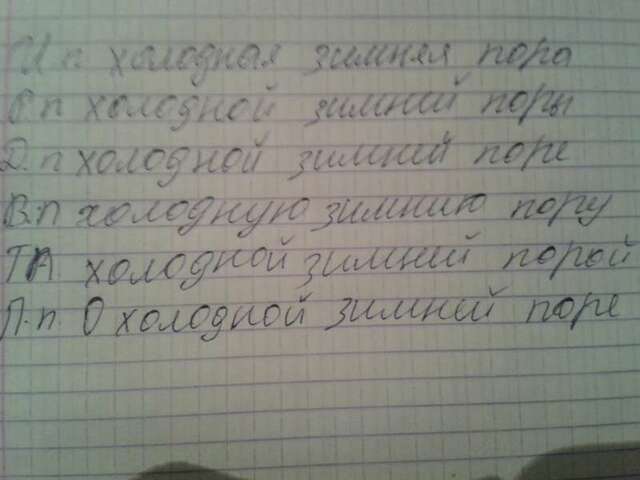 И.п холодная зимняя пора
Р.п холодной зимней поры
Д.п холодной зимней поре
В.п холодную зимнию пору
Т.п холодной зимней порой
П.п. О холодной зимней поре